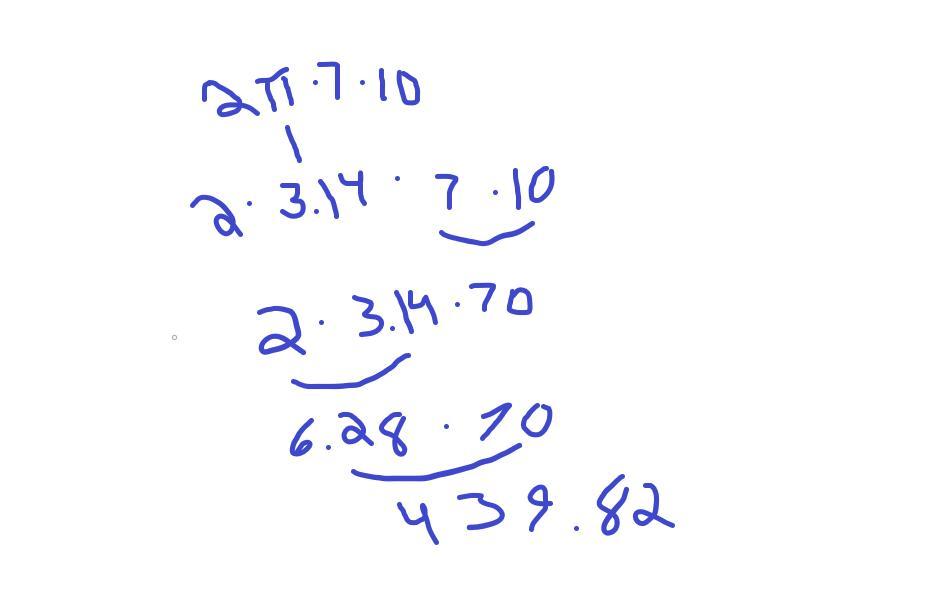 2π · 7 · 10
2 · 3.14 · 7 · 10
2 · 3.14 · 70
6.28 · 70
439.82